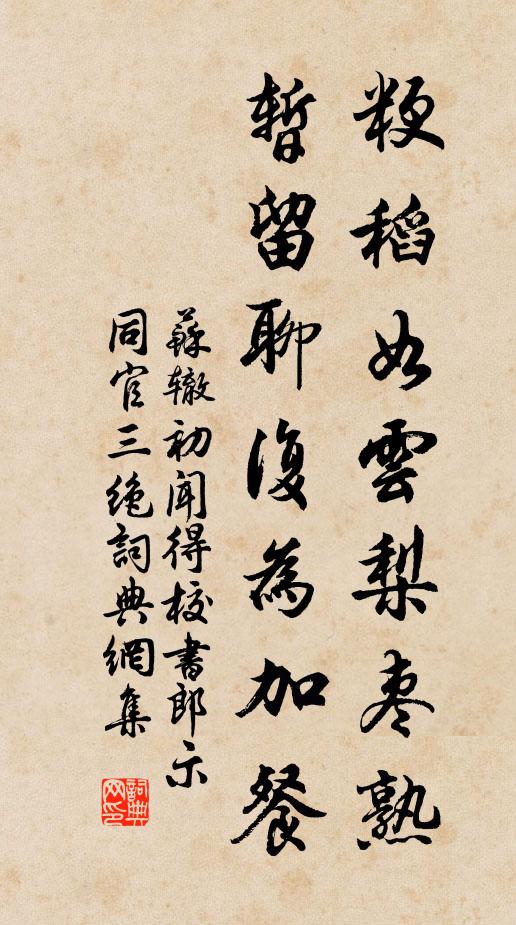 粳稻如雲梨枣熟
暫留聊復為加餐
蘇辙初闻得校書郎示
同官三绝詞典網集
詞典网印